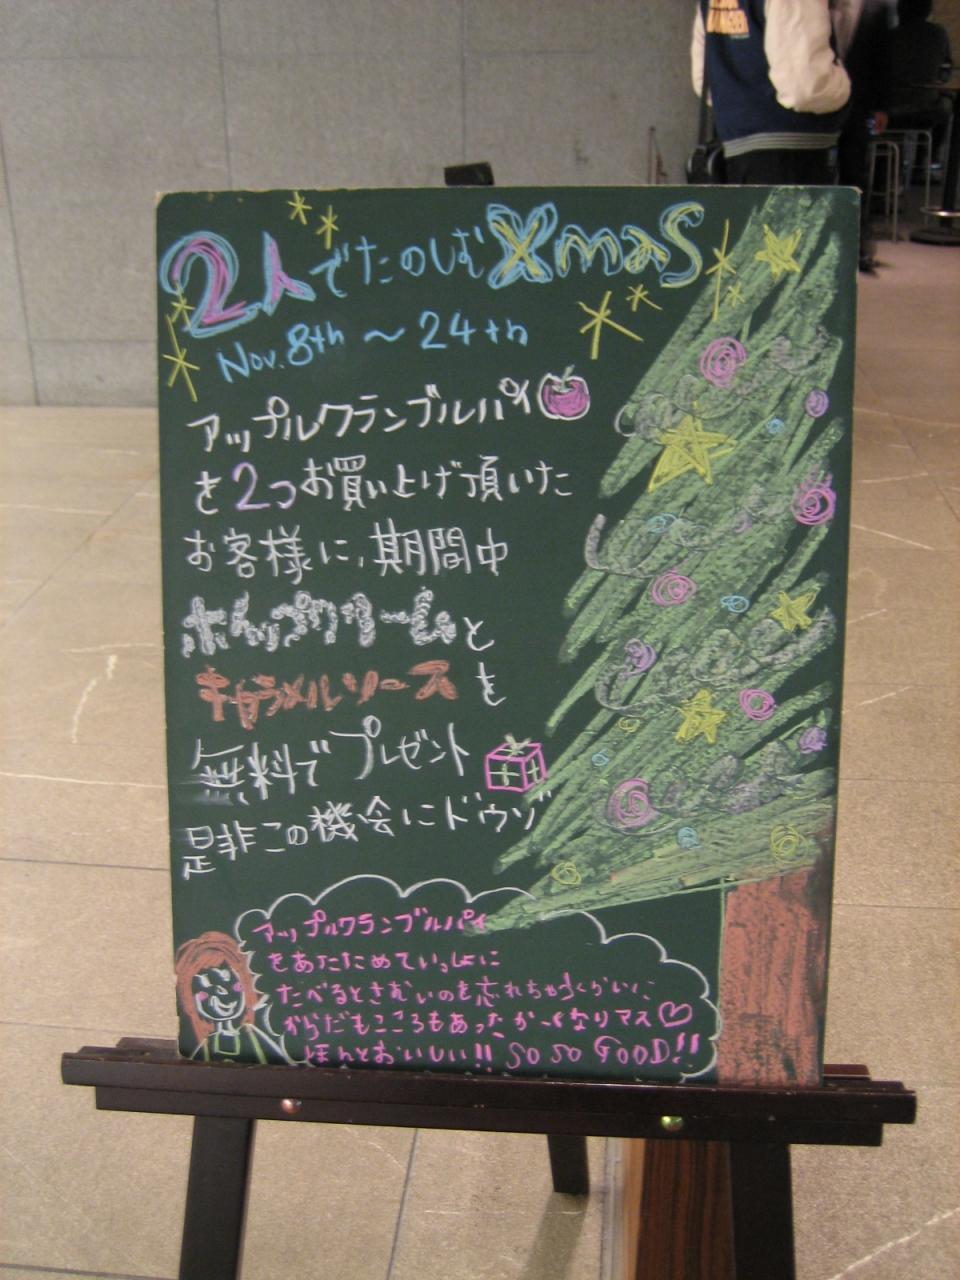 2人でたのしむXmas
Nov. 8th 〜 24th
アップルクランブルパイ
を2つお買い上げ頂いた
お客様に、期間中
ホイップクリームと
キャラメルソースを
無料でプレゼント
是非この機会にドウゾ
アップルクランブルパイ
をあたためていっしょに
たべるとさむいのを忘れちゃうくらいに
からだもこころもあったかくなりマス♡
ほんとおいしい!! SO SO GOOD!!